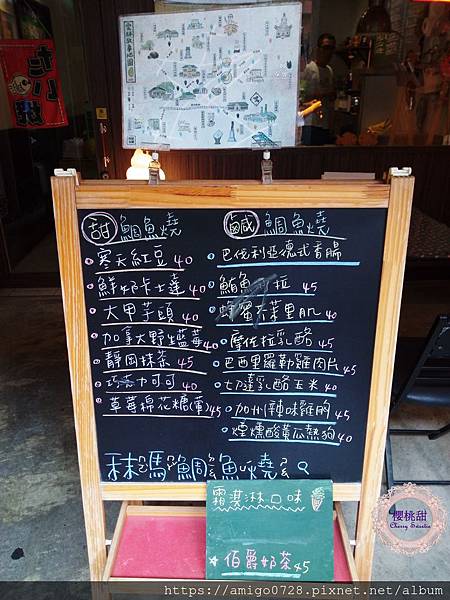 甜 鯛魚燒
寒天紅豆 40
鮮奶卡士達 40
大甲芋頭 40
加拿大野生藍莓 40
靜岡抹茶 45
巧克力可可 40
草莓棉花糖(季)45
鹹 鯛魚燒
巴伐利亞德式香腸
鮪魚 拉 45
蜂蜜芥茉里肌 40
摩佐拉乳酪 40
巴西里羅勒雞肉片 45
切達乳酪玉米 40
加州辣味雞肉 45
煙燻酸黃瓜熱狗 40
鯛魚燒
霜淇淋口味
伯爵奶茶 45
たい焼
櫻桃甜
Cherry Sweetie
https://amigo0728.pixnet.net/album